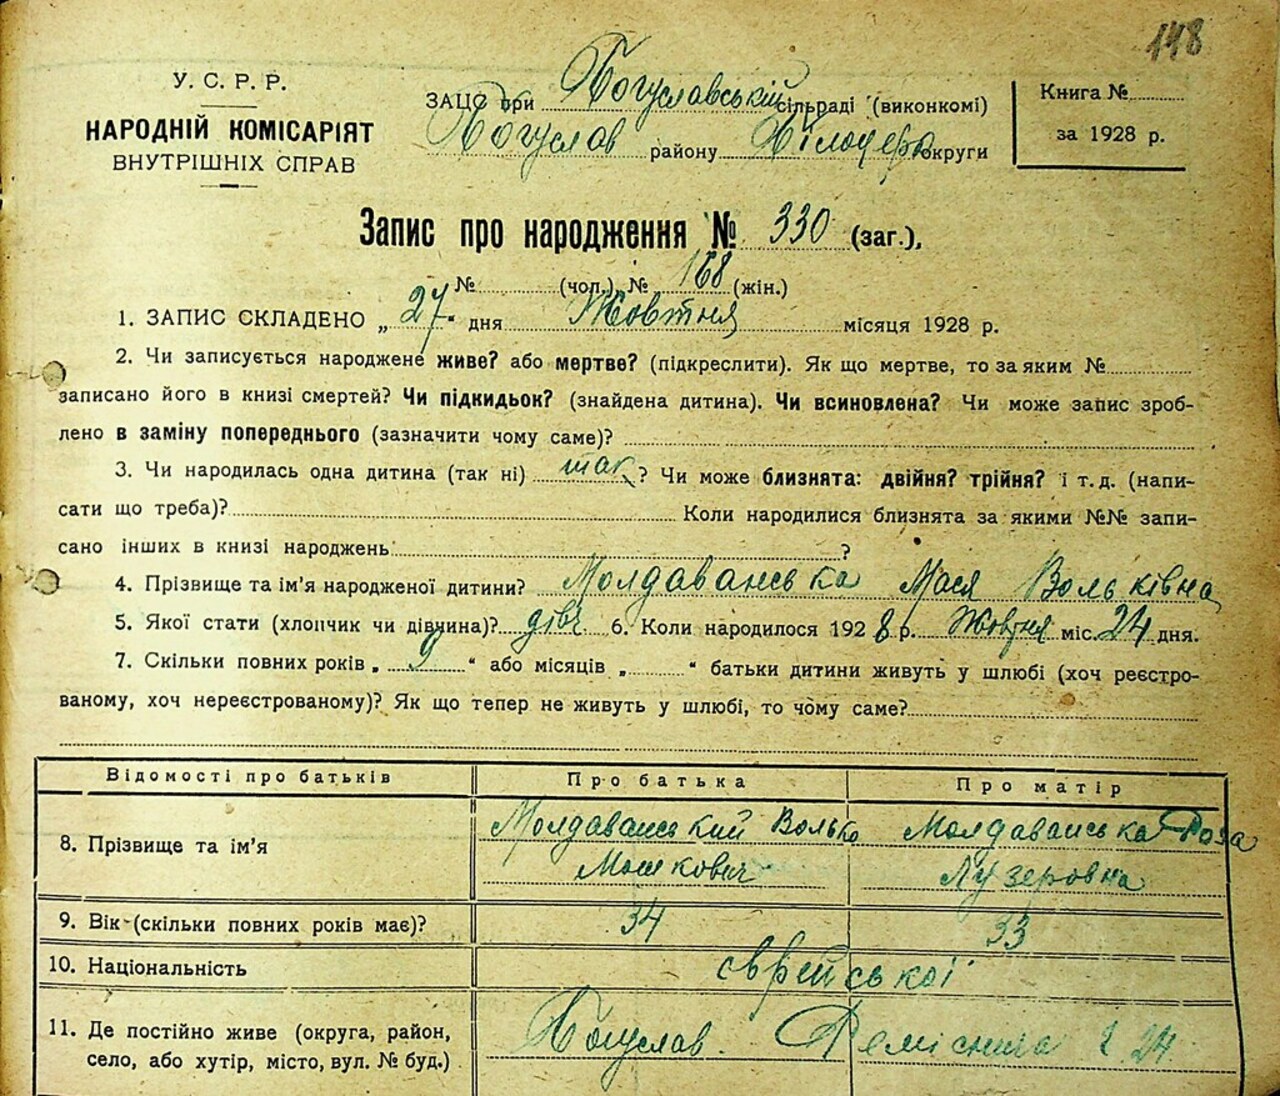 148
У. С. Р. Р.
НАРОДНІЙ КОМІСАРІЯТ
ВНУТРІШНІХ СПРАВ
ЗАЦС при Богуславській сільраді (виконкомі)
Богуслав району Білоцерк округи
Книга №
за 1928 р.
Запис про народження № 330 (заг.),
№ (чол.), № 168 (жін.)
1. ЗАПИС СКЛАДЕНО „27" дня Жовтня місяця 1928 р.
2. Чи записується народжене живе? або мертве? (підкреслити). Як що мертве, то за яким №
записано його в книзі смертей? Чи підкидьок? (знайдена дитина). Чи всиновлена? Чи може запис зроб-
лено в заміну попереднього (зазначити чому саме)?
3. Чи народилась одна дитина (так ні) так? Чи може близнята: двійня? трійня? і т. д. (напи-
сати що треба)? Коли народилися близнята за якими №№ запи-
сано інших в книзі народжень?
4. Прізвище та ім'я народженої дитини? Молдаванська Мася Вольківна
5. Якої стати (хлопчик чи дівчина)? дівч. 6. Коли народилося 1928 р. Жовтня міс. 24 дня.
7. Скільки повних років „9" або місяців „ " батьки дитини живуть у шлюбі (хоч реєстро-
ваному, хоч нереєстрованому)? Як що тепер не живуть у шлюбі, то чому саме?
Відомості про батьків Про батька Про матір
8. Прізвище та ім'я Молдаванський Волько Мошкович Молдаванська Роза Лузеровна
9. Вік (скільки повних років має)? 34 33
10. Національність єврейської
11. Де постійно живе (округа, район, Богуслав. Реміснича 24
село, або хутір, місто, вул. № буд.)